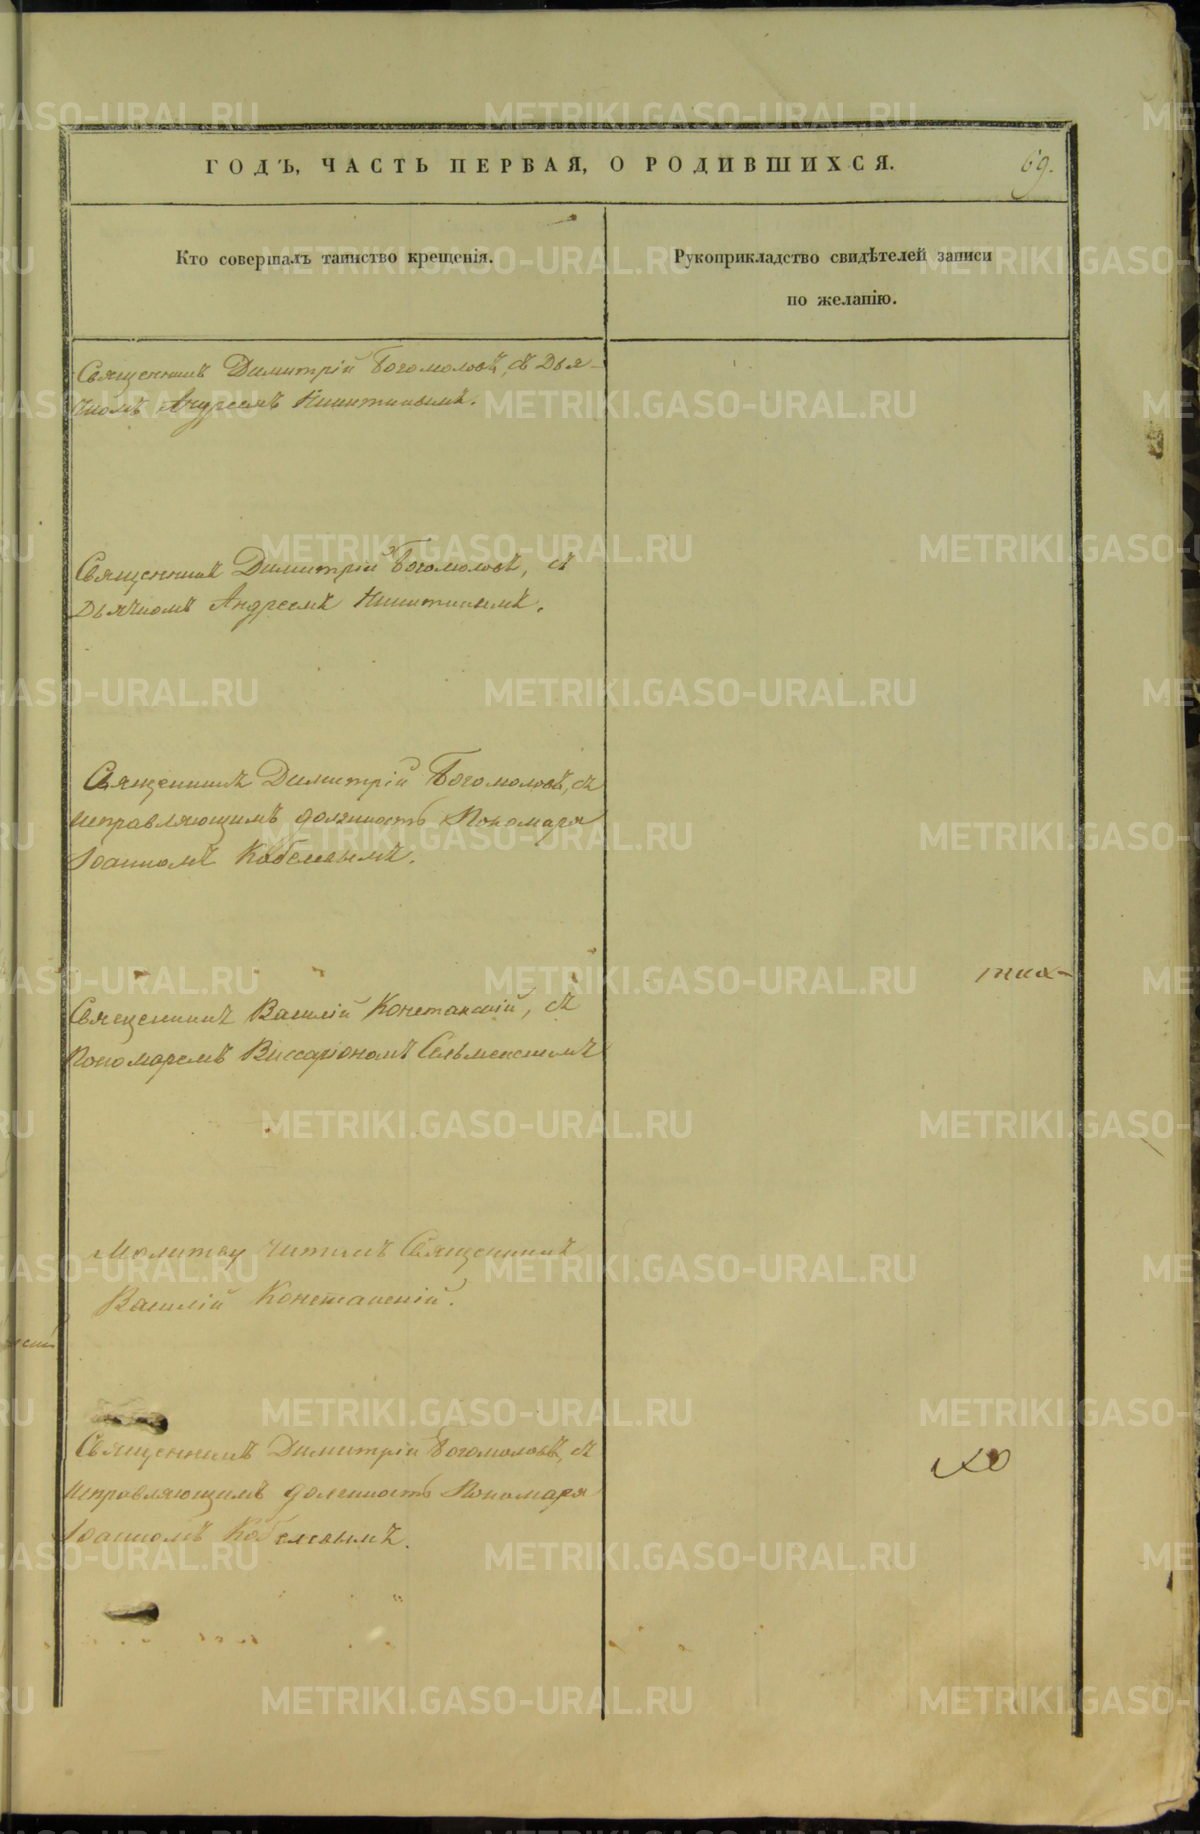 ГОДЪ, ЧАСТЬ ПЕРВАЯ, О РОДИВШИХСЯ.
69.
Кто совершалъ таинство крещенія.
Рукоприкладство свидѣтелей записи
по желанію.
Священникъ Димитрій Богомоловъ, съ Дья-
чкомъ Андреемъ Никитинымъ.
Священникъ Димитрій Богомоловъ, съ
Дьячкомъ Андреемъ Никитинымъ.
Священникъ Димитрій Богомоловъ, съ
исправляющимъ должность Пономаря
Іоанномъ Кобелевымъ.
Священникъ Василій Конетанскій, съ
Пономаремъ Виссаріономъ
Молитву читалъ Священникъ
Василій Конетанскій.
Священникъ Димитрій Богомоловъ, съ
исправляющимъ должность Пономаря
Іоанномъ Кобелевымъ.
METRIKI.GASO-URAL.RU